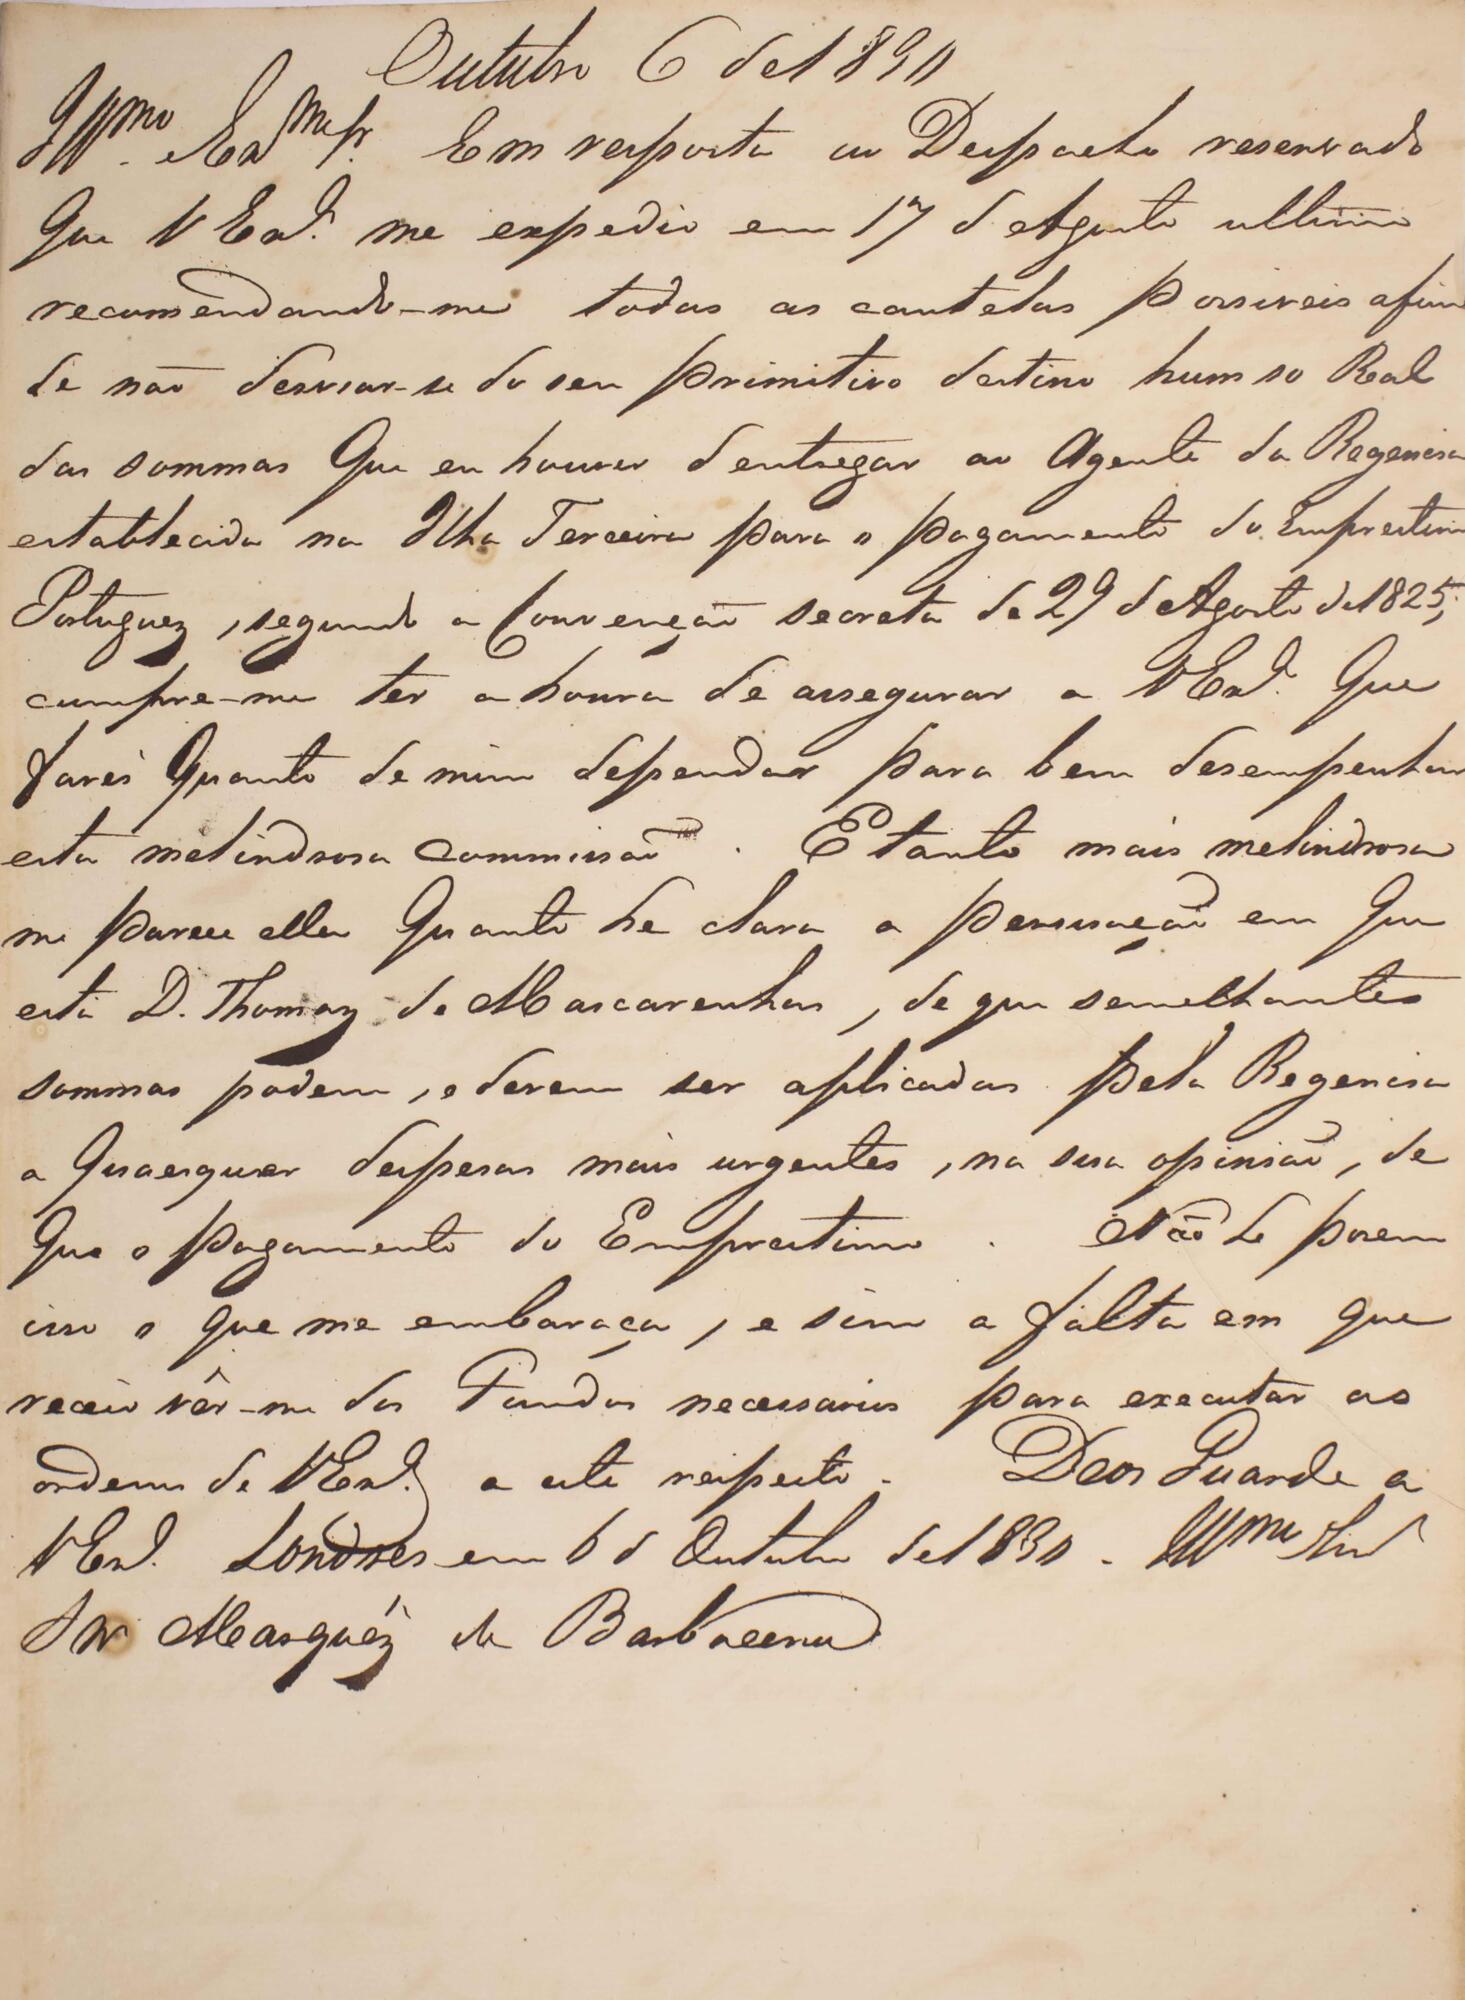 Outubro 6 de 1830
Illmo. e Exmo Sr. Em resposta ao Despacho reservado
que V Exa. me expedio em 17 d'Agosto ultimo
recomendando-me todas as cautelas possiveis afim
de não desviar-se do seu primitivo destino hum so Real
das sommas que eu houver d'entregar ao Agente da Regencia
establecida na Ilha Terceira para o pagamento do Emprestimo
Portuguez, segundo a Convenção secreta de 29 d'Agosto de 1825,
cumpre-me ter a honra de assegurar a V Exa. que
farei quanto de mim depender para bem desempenhar
esta melindrosa commissão. E tanto mais melindrosa
me parece ella quanto he clara a persuação em que
está D. Thomaz de Mascarenhas, de que semelhantes
sommas podem, e devem ser aplicadas pela Regencia
a quaesquer despesas mais urgentes, na sua opinião, de
que o pagamento do Emprestimo. Não he porem
isso o que me embaraça, e sim a falta em que
receio vêr-me dos Fundos necessarios para executar as
ordens de V Exa. a este respeito. Deos Guarde a
V Exa. Londres em 6 d'Outubro de 1830. Illmo
Snr Marquéz de Barbacena